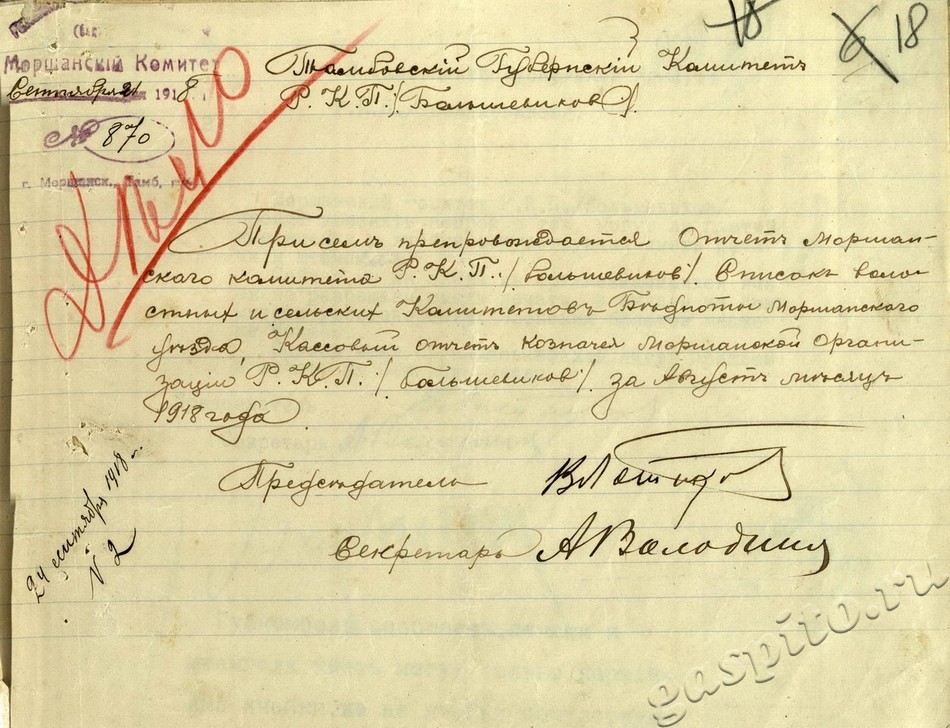 Моршанскій Комитет
Сентября 21 1918
№ 870
г. Моршанск, Тамб. губ.
18
6 18
Тамбовскій Губернскій Комитетъ
Р. К. П. /Большевиковъ/.
Дѣло
При семъ препровождается Отчетъ Моршан-
ского комитета Р. К. П. /Большевиковъ/. Списокъ воло-
стных и сельских Комитетовъ Бѣдноты Моршанского
уѣзда, Кассовый отчетъ козначея Моршанской Органи-
заціи Р. К. П. /Большевиковъ/. за Августъ мѣсяцъ
1918 года.
Председатель
Секретарь АВолодина
24 сентября 1918 г.
№ 2
gaspito.ru